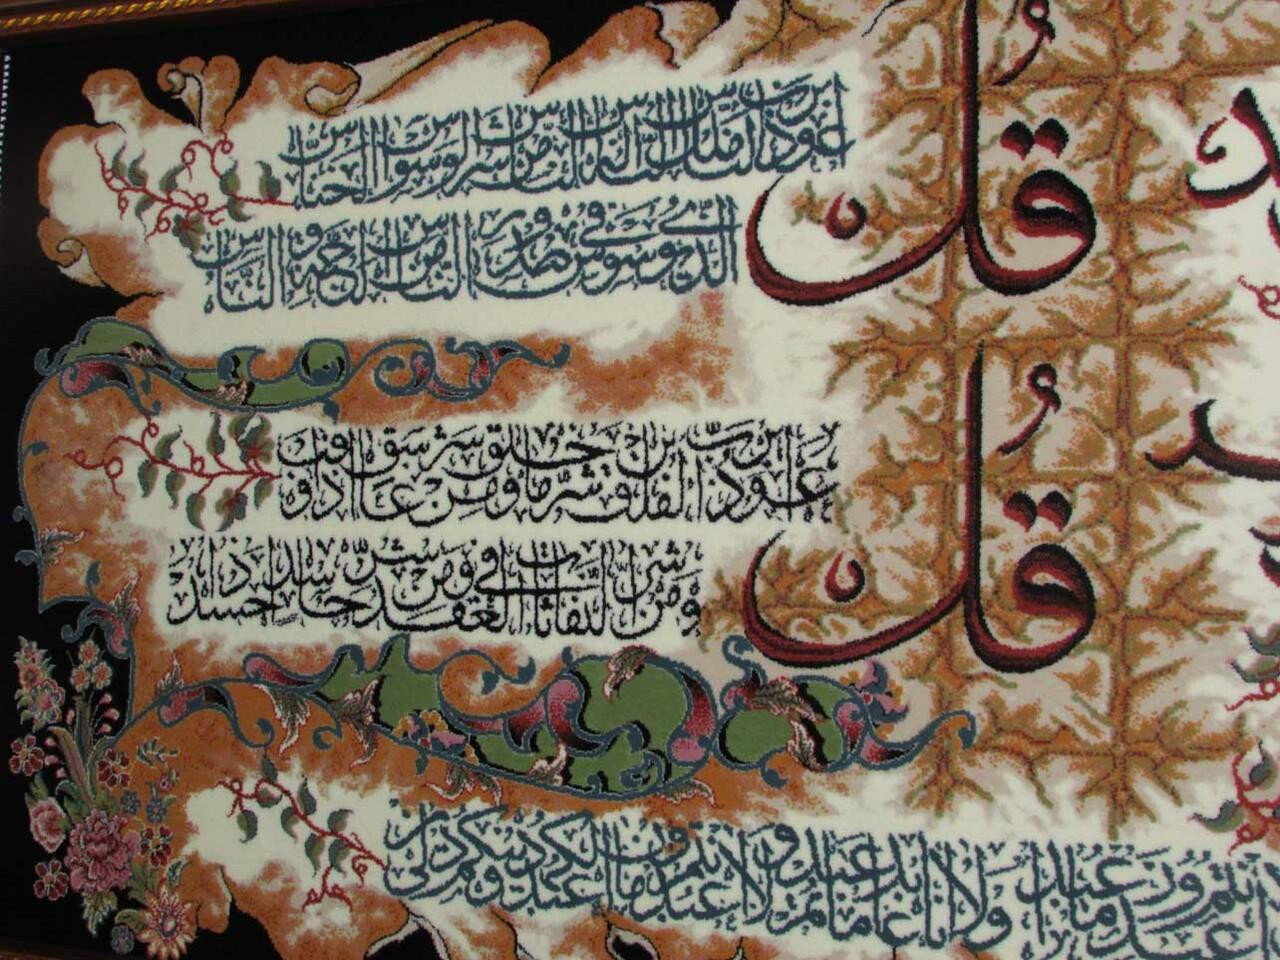 قل
اعوذ برب الناس ملك الناس اله الناس من شر الوسواس الخناس
الذي يوسوس في صدور الناس من الجنة و الناس
قل
اعوذ برب الفلق من شر ما خلق و من شر غاسق اذا وقب
و من شر النفاثات في العقد و من شر حاسد اذا حسد
اعبد ما تعبدون و لا انتم عابدون ما اعبد و لا انا عابد ما عبدتم و لا انتم عابدون ما اعبد لكم دينكم و لي دين